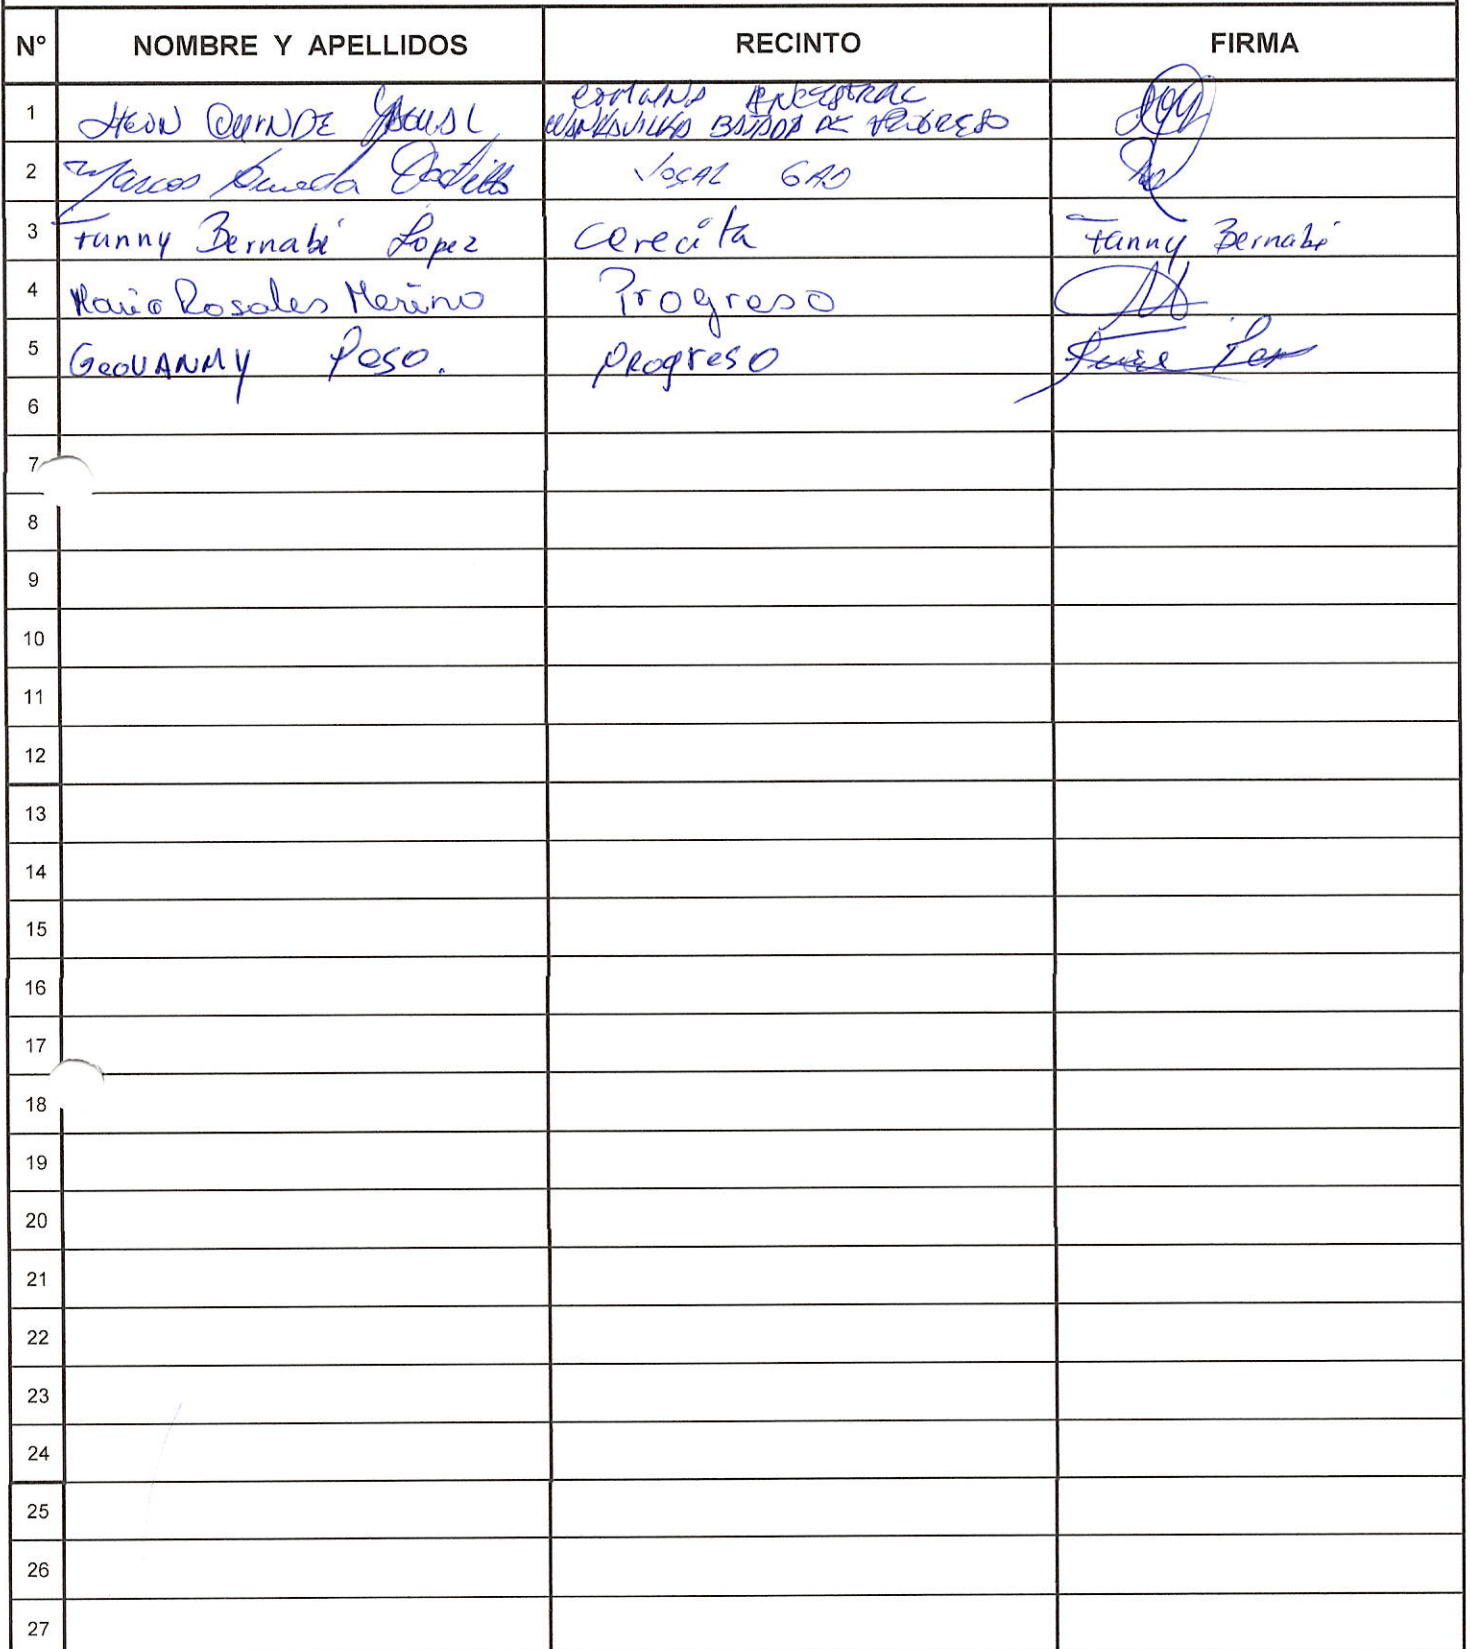 N° NOMBRE Y APELLIDOS RECINTO FIRMA
1 QUINDE ANCESTRAL
BAJADA DE PROGRESO
2 Marcos Castillo VOCAL GAD
3 Fanny Bernabé Lopez Cerecita Fanny Bernabé
4 Mario Rosales Merino Progreso
5 GeoVANNY Poso. PRogreso
6
7
8
9
10
11
12
13
14
15
16
17
18
19
20
21
22
23
24
25
26
27